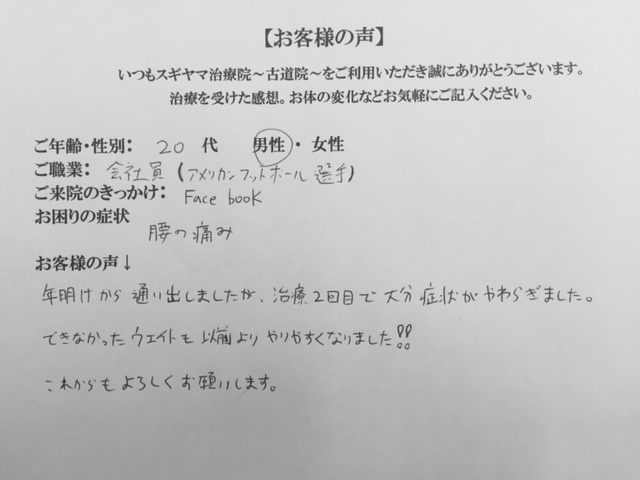 【お客様の声】
いつもスギヤマ治療院～古道院～をご利用いただき誠にありがとうございます。
治療を受けた感想。お体の変化などお気軽にご記入ください。
ご年齢・性別： 20 代 男性・女性
ご職業： 会社員 (アメリカンフットボール選手)
ご来院のきっかけ： Face book
お困りの症状
腰の痛み
お客様の声↓
年明けから通い出しましたが、治療2回目で大分症状がやわらぎました。
できなかったウェイトも以前よりやりやすくなりました!!
これからもよろしくお願いします。